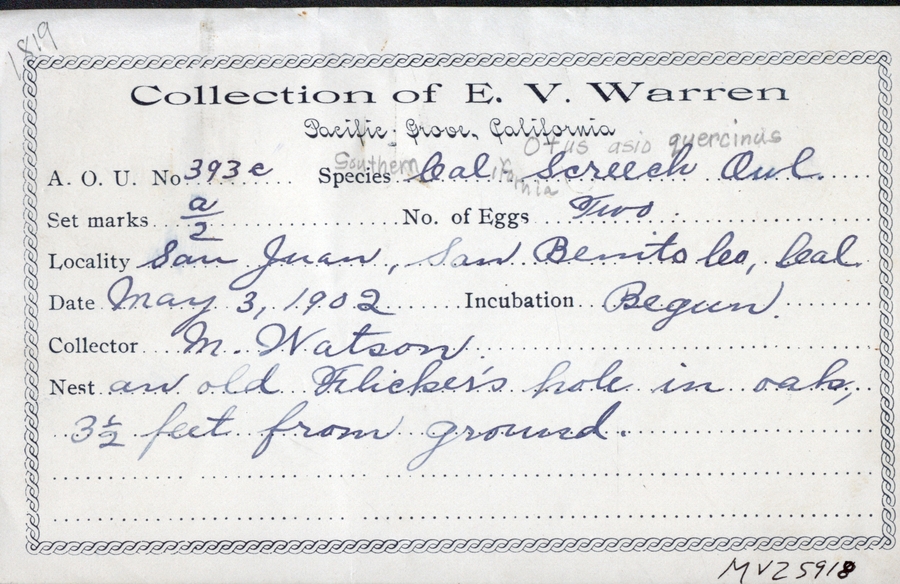 1819
Collection of E. V. Warren
Pacific Grove, California
Otus asio quercinus
Southern ifornia
A. O. U. No. 393c Species Cal. Screech Owl.
Set marks a/2 No. of Eggs Two
Locality San Juan, San Benito Co, Cal.
Date May 3, 1902 Incubation Begun.
Collector M. Watson.
Nest an old Flicker's hole in oak,
3½ feet from ground.
MVZ 5918